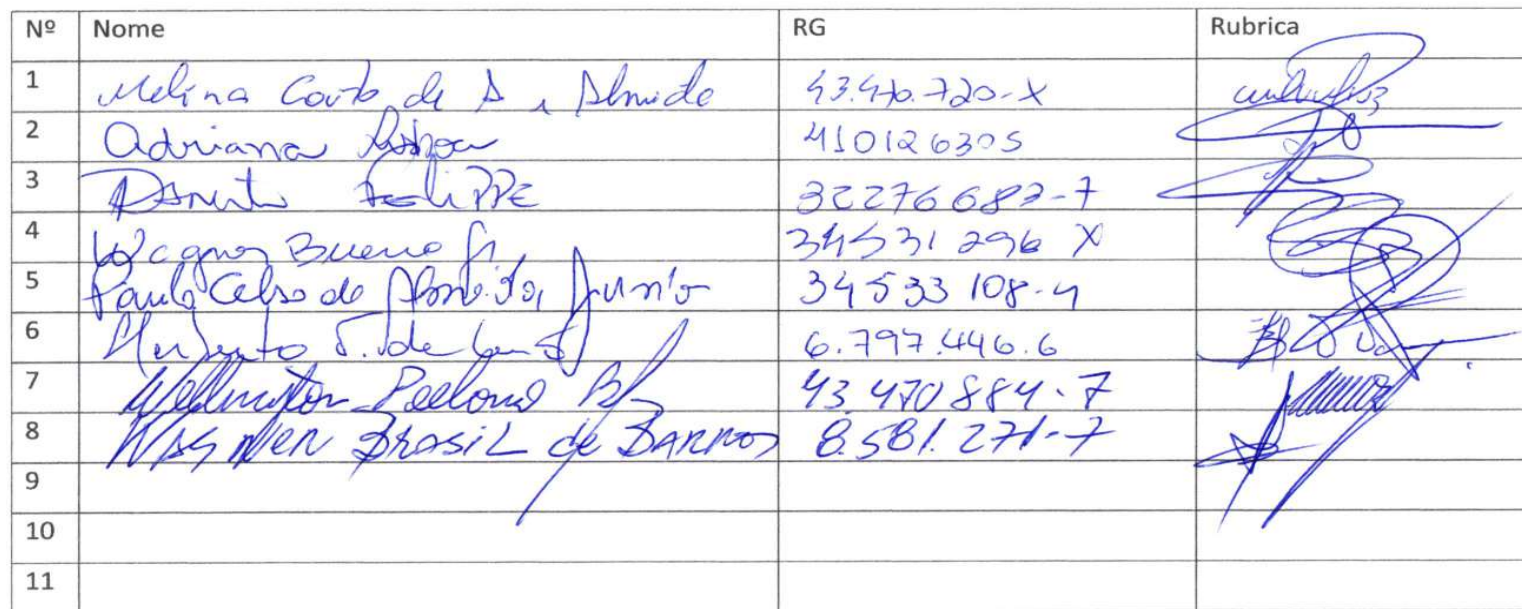 Nº Nome RG Rubrica
1 Melina Couto de A Almeida 43.470.720-X
2 Adriana 410126305
3 FeliPPE 32276683-7
4 Wagner Bueno Jr 34531296 X
5 Paulo Celso de Almeida Junior 34533108-4
6 6.797.446.6
7 Wellington 43.470884-7
8 WAGNER BRASIL de BARROS 8.581.271-7
9
10
11